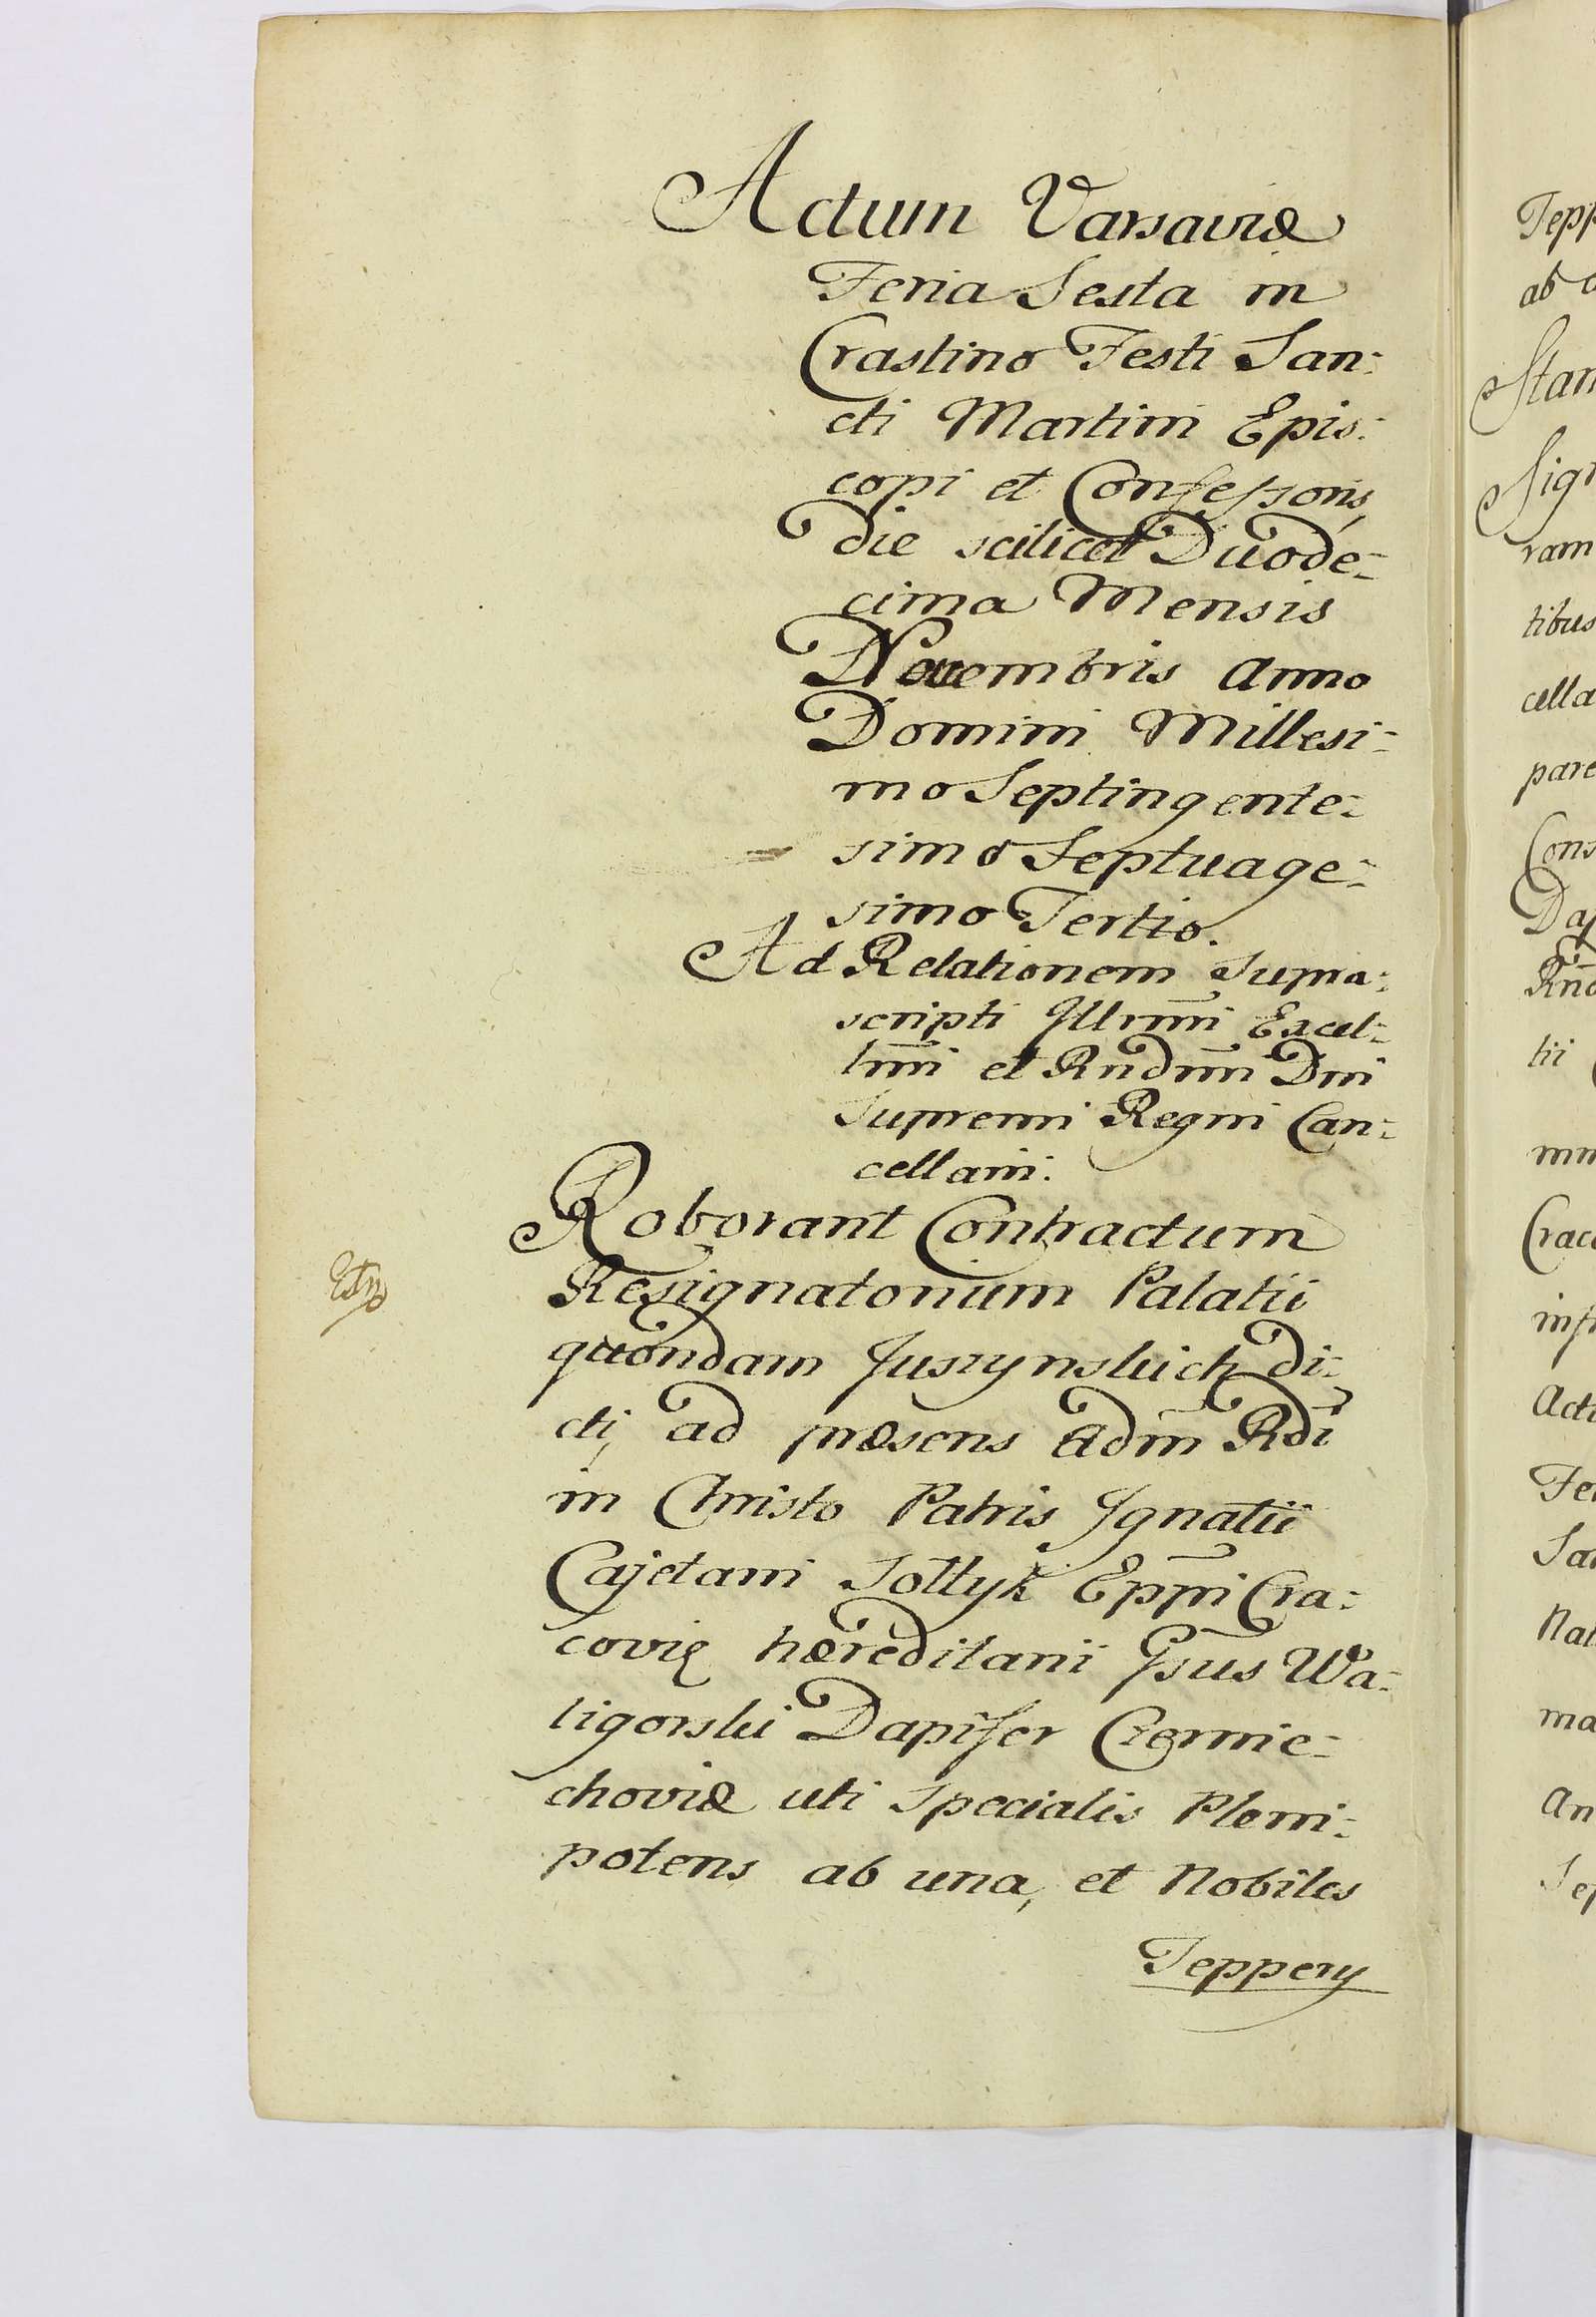 Actum Varsaviæ
Feria Sexta in
Crastino Festi San:
cti Martini Epis:
copi et Confessoris,
die scilicet Duode:
cima Mensis
Novembris Anno
Domini Millesi:
mo Septingente:
simo Septuage:
simo Tertio.
Ad Relationem Supra:
scripti Illrmi Excel:
lmi et Rndmi Dni
Supremi Regni Can:
cellarii.
Roborant Contractum
Resignatorium Palatii
quondam Juszynskich di:
cti, ad præsens Adm Rdi
in Christo Patris Ignatii
Cajetani Sołtyk Eppi Cra:
covię hæreditarii Gsus Wa:
ligorski Dapifer Czernie:
choviæ uti Specialis Pleni:
potens ab una, et Nobiles
Teppery
Tepp
ab
Stan
Sign
ram
tibus
cella
pare
Cons
Dap
tii
Crac
Actu
ma
An
Sep